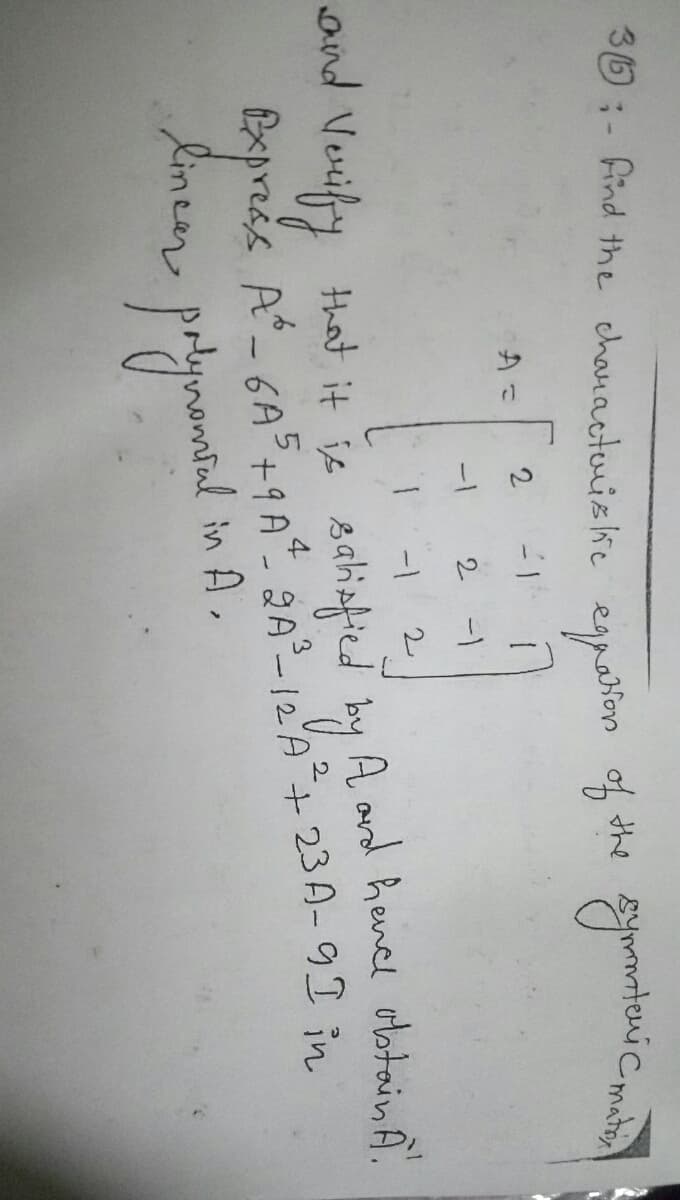 3(b) :- Find the characteristic equation of the symmetric matrix
A = [ 2 -1 1
-1 2 -1
1 -1 2 ]
and Verify that it is satisfied by A and hence obtain A⁻¹.
Express A⁶ - 6A⁵ + 9A⁴ - 2A³ - 12A² + 23A - 9I in
linear polynomial in A.